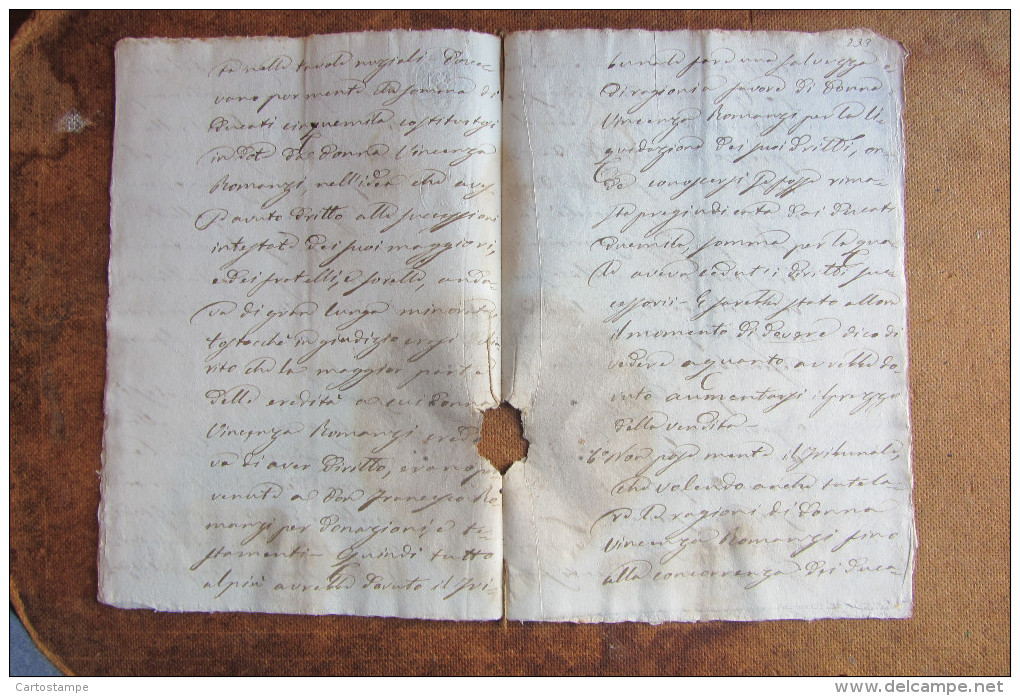 ta nelle tavole nuziali - Dove-
vano por mente che somma di
Ducati cinquemila costituitasi
in dote da Donna Vincenza
Romanzi, nell'idea che aves-
se avuto dritto alle successioni
intestate dei suoi maggiori,
e dei fratelli, e sorelle, anda-
va di gran lunga minorata
tostocchè in giudizio erasi chia-
rito che la maggior parte
delle eredità a cui Donna
Vincenza Romanzi crede-
va di aver diritto, erano per-
venute a don Francesco Ro-
manzi per donazioni, e te-
stamenti - Quindi tutto
al più avrebbe dovuto il Tri-
239
bunale fare una salvezza
di ragioni a favore di Donna
Vincenza Romanzi per la li-
quidazione dei suoi dritti, on-
de conoscersi se fosse rima-
sta pregiudicata dai Ducati
duemila, somma per la qua-
le aveva ceduti i dritti suc-
cessorii - E sarebbe stato allora
il momento di dovere dico di
vedere a quanto avrebbe do-
vuto aumentarsi il prezzo
della vendita -
6° Non pose mente il Tribunale,
che volendo anche tutela-
re le ragioni di Donna
Vincenza Romanzi fino
alla concorrenza dei Duca-
Cartostampe
delcampe.net